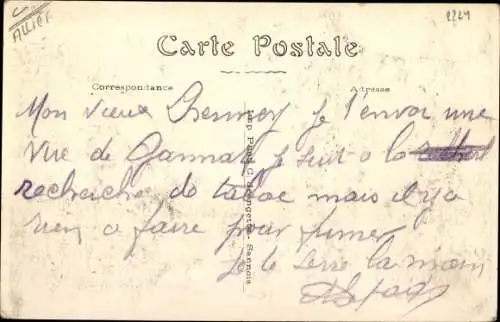 ALLIER
Carte Postale
Correspondance
Adresse
Mon vieux je t'envoi une
vue de Gannat je suit a la
recherche de tabac mais il y a
rien a faire pour fumer
Je te serre la main